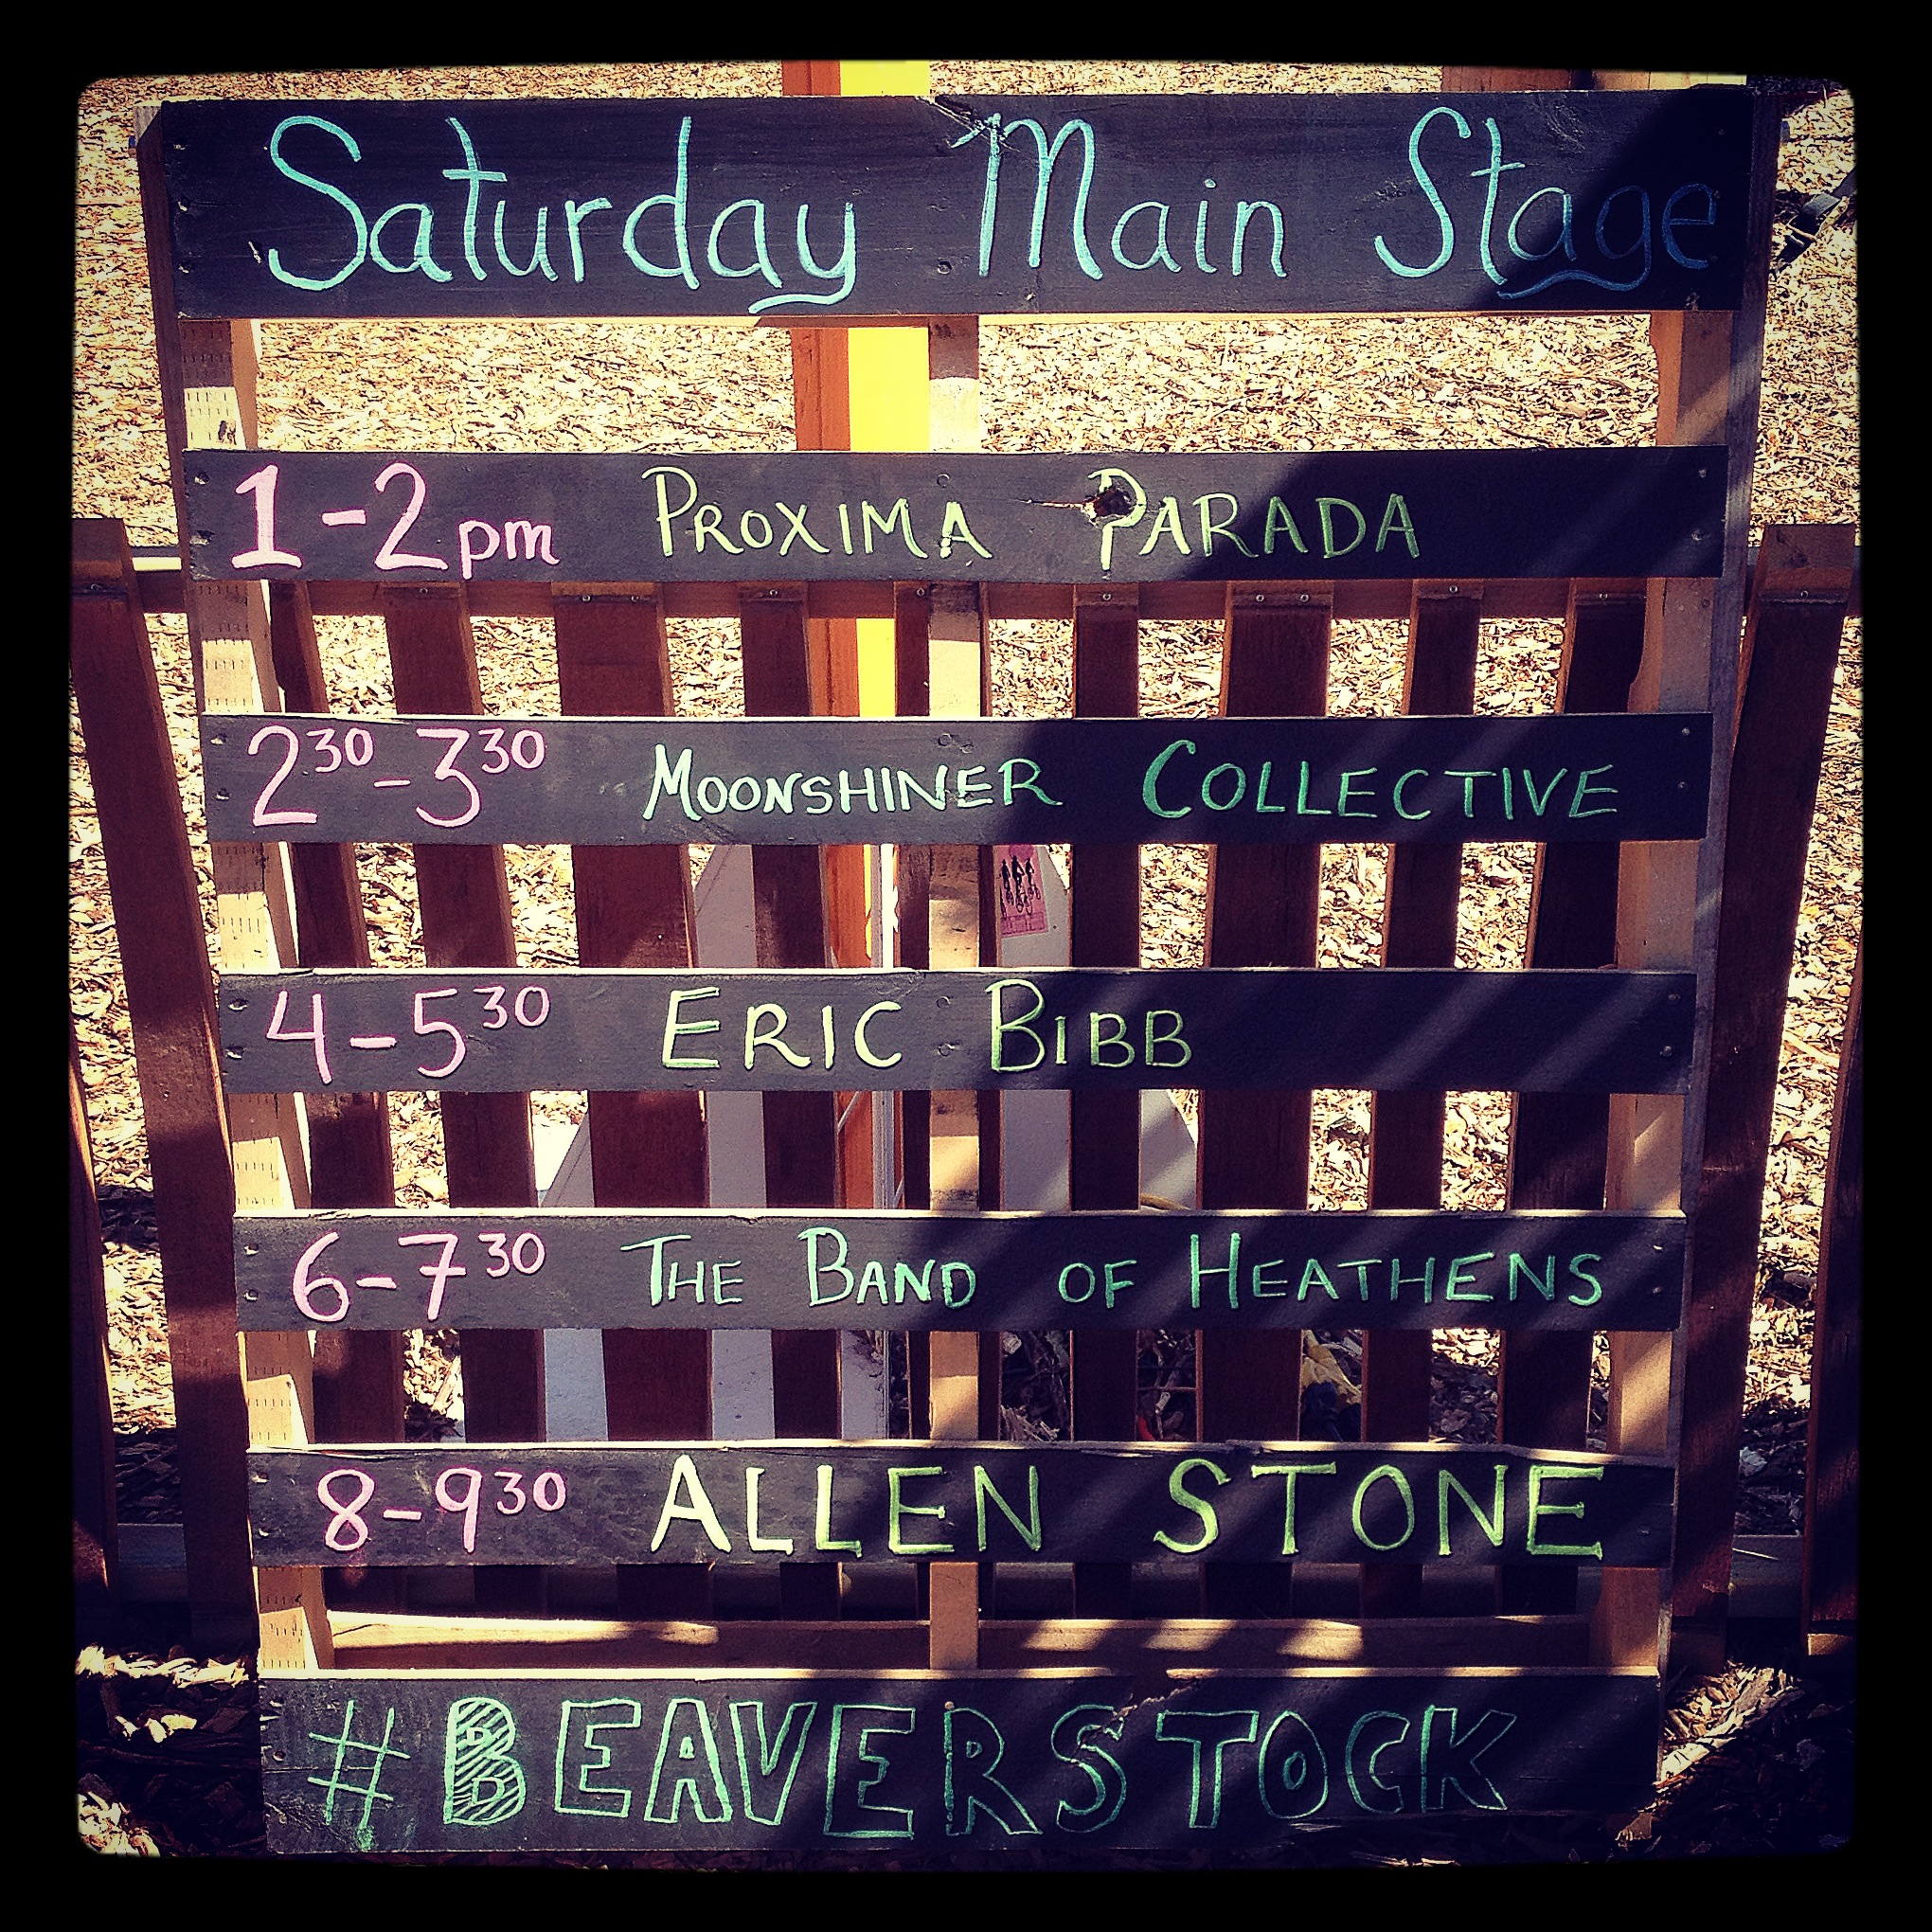 Saturday Main Stage
1-2pm PROXIMA PARADA
2³⁰-3³⁰ MOONSHINER COLLECTIVE
4-5³⁰ ERIC BIBB
6-7³⁰ THE BAND OF HEATHENS
8-9³⁰ ALLEN STONE
#BEAVERSTOCK